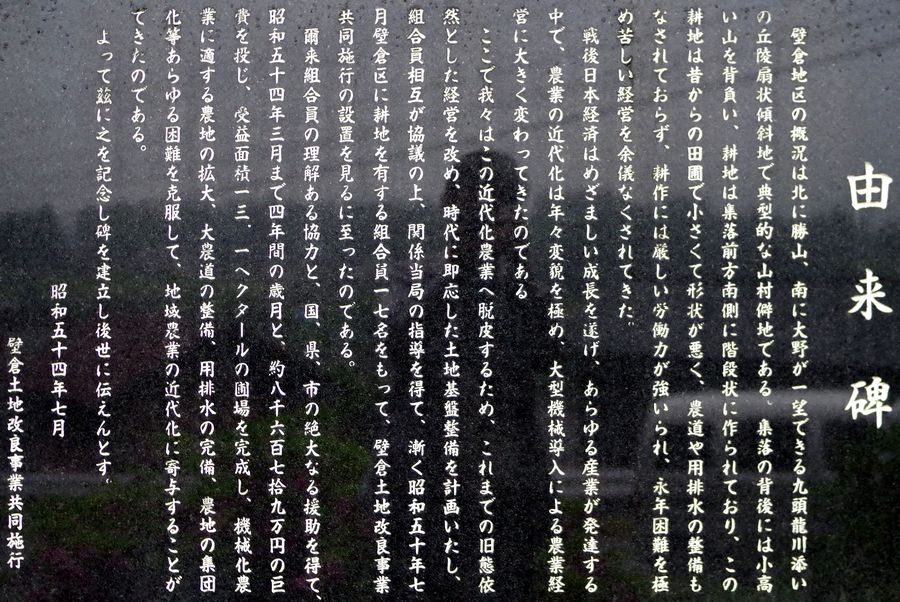 由来碑
壁倉地区の概況は北に勝山、南に大野が一望できる九頭龍川添い
の丘陵扇状傾斜地で典型的な山村僻地である。集落の背後には小高
い山を背負い、耕地は集落前方南側に階段状に作られており、この
耕地は昔からの田圃で小さくて形状が悪く、農道や用排水の整備も
なされておらず、耕作には厳しい労働力が強いられ、永年困難を極
め苦しい経営を余儀なくされてきた。
戦後日本経済はめざましい成長を遂げ、あらゆる産業が発達する
中で、農業の近代化は年々変貌を極め、大型機械導入による農業経
営に大きく変わってきたのである
ここで我々はこの近代化農業へ脱皮するため、これまでの旧態依
然とした経営を改め、時代に即応した土地基盤整備を計画いたし、
組合員相互が協議の上、関係当局の指導を得て、漸く昭和五十年七
月壁倉区に耕地を有する組合員一七名をもって、壁倉土地改良事業
共同施行の設置を見るに至ったのである。
爾来組合員の理解ある協力と、国、県、市の絶大なる援助を得て、
昭和五十四年三月まで四年間の歳月と、約八千六百七拾九万円の巨
費を投じ、受益面積一三、一ヘクタールの圃場を完成し、機械化農
業に適する農地の拡大、大農道の整備、用排水の完備、農地の集団
化等あらゆる困難を克服して、地域農業の近代化に寄与することが
できたのである。
よって茲に之を記念し碑を建立し後世に伝えんとす。
昭和五十四年七月
壁倉土地改良事業共同施行